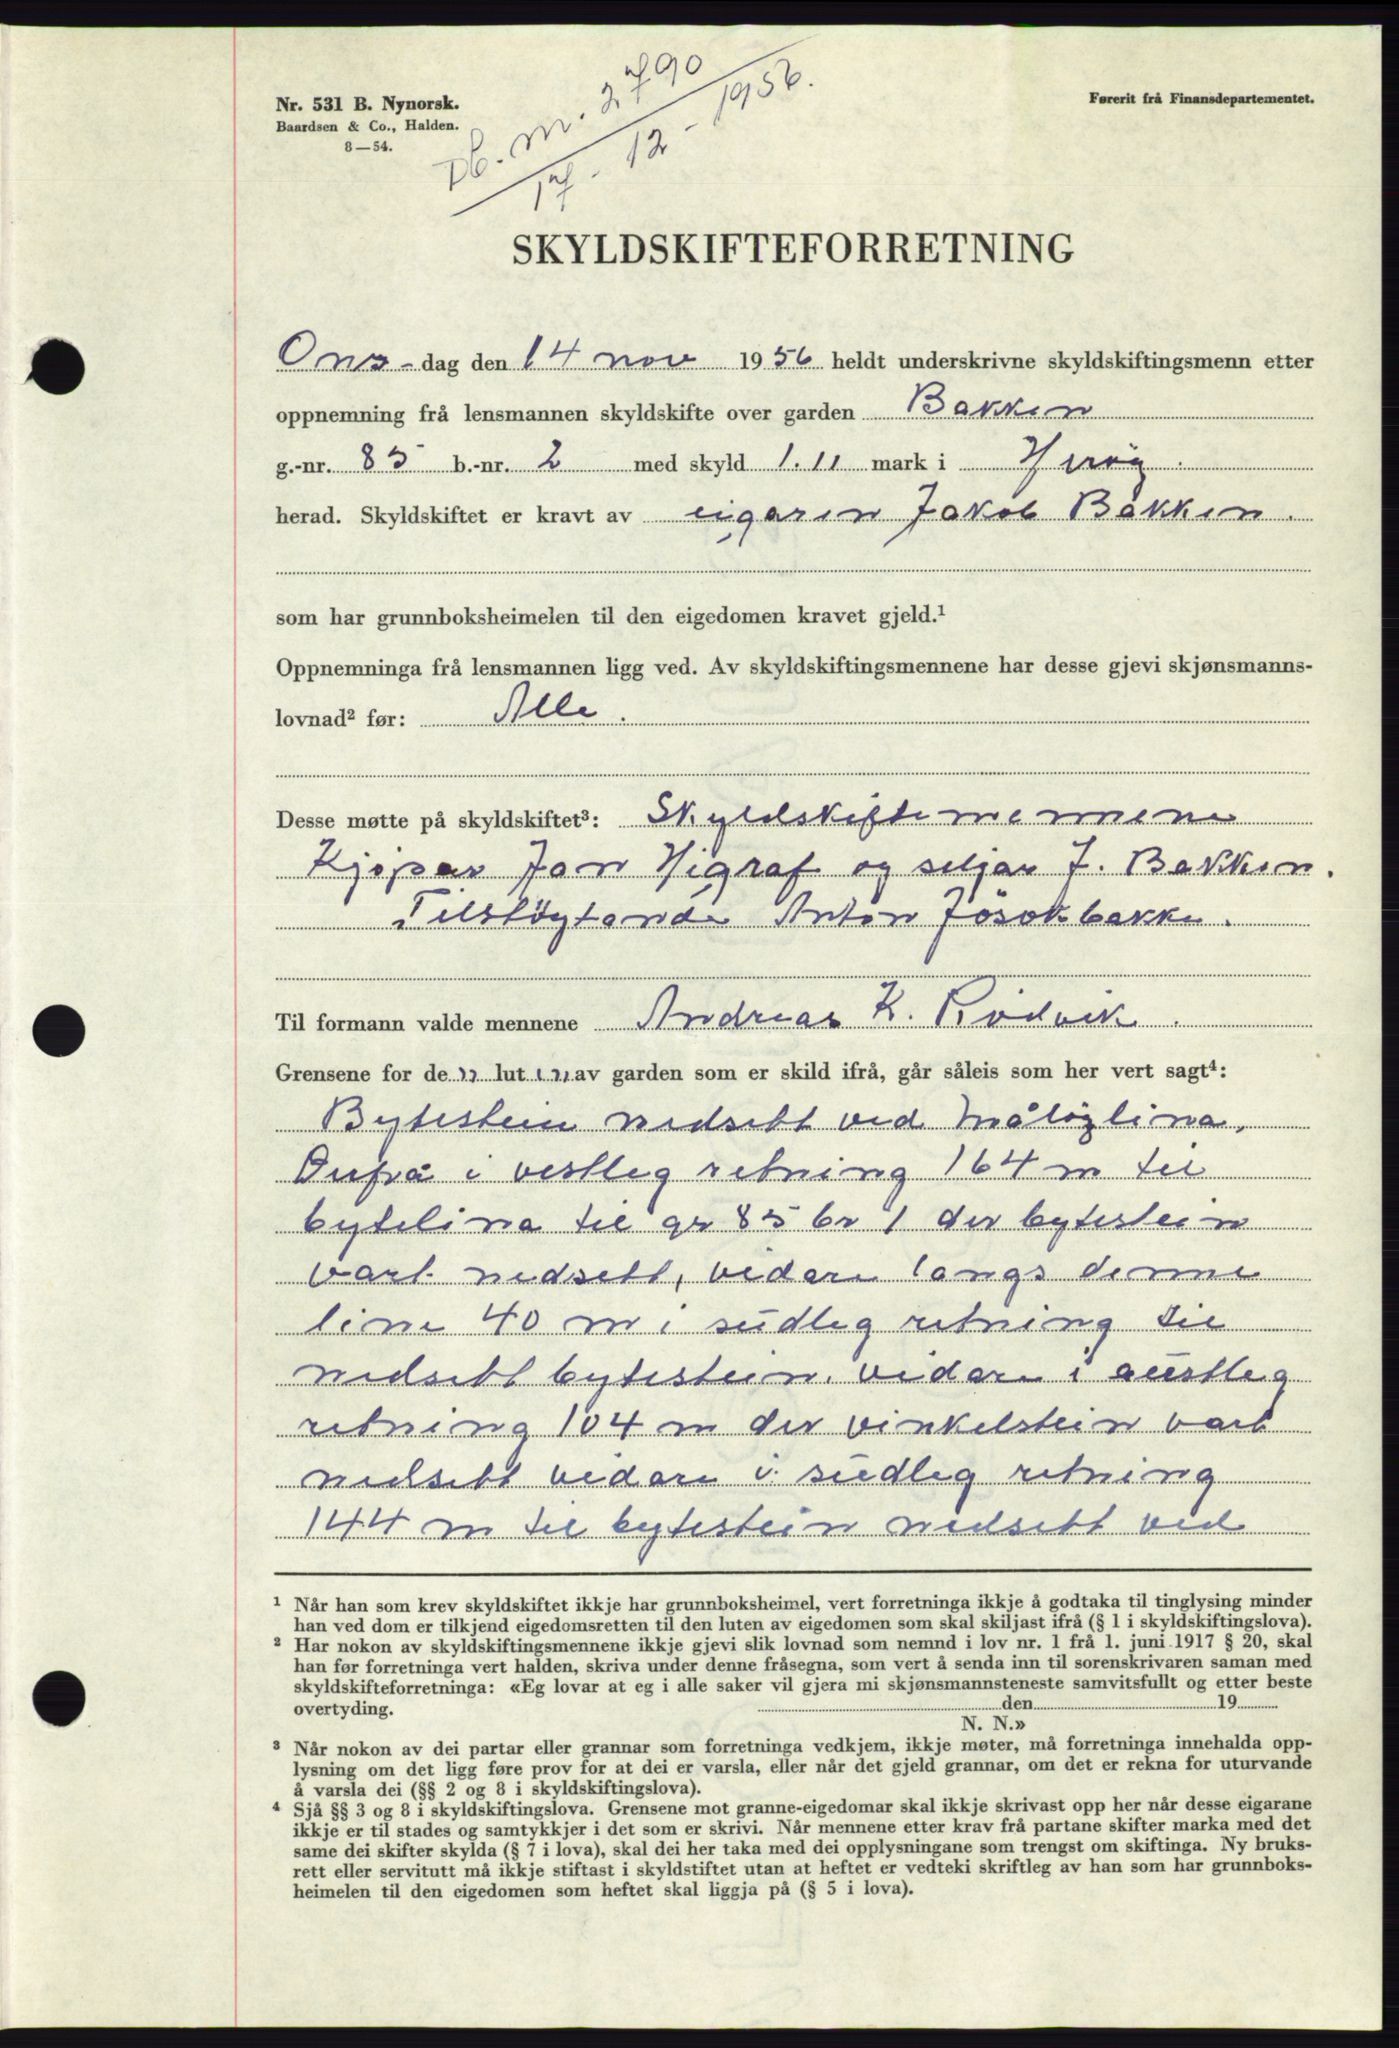 Nr. 531 B. Nynorsk.
Baardsen & Co., Halden.
8—54.
Db. nr. 2790
17 - 12 - 1956.
Førerit frå Finansdepartementet.
SKYLDSKIFTEFORRETNING
Ons- dag den 14 nov 1956 heldt underskrivne skyldskiftingsmenn etter
oppnemning frå lensmannen skyldskifte over garden Bakken
g.-nr. 85 b.-nr. 2 med skyld 1.11 mark i Herøy.
herad. Skyldskiftet er kravt av eigaren Jakob Bakken.
som har grunnboksheimelen til den eigedomen kravet gjeld.¹
Oppnemninga frå lensmannen ligg ved. Av skyldskiftingsmennene har desse gjevi skjønsmanns-
lovnad² før: Alle.
Desse møtte på skyldskiftet³: Skyldskiftemennene
Kjøpar Jan Higraf og seljar J. Bakken.
Tilstøytande Anton Jøsokbakke.
Til formann valde mennene Andreas K. Rødvik.
Grensene for den luten av garden som er skild ifrå, går såleis som her vert sagt⁴:
Bytestein nedsett ved Måløylina,
Derfrå i vestleg retning 164 m til
bytelina til gr 85 br 1 der bytestein
vart nedsett, vidare langs denne
line 40 m i sudleg retning til
nedsett bytestein, vidare i austleg
retning 104 m der vinkelstein vart
nedsett vidare i sudleg retning
144 m til bytestein nedsett ved
¹ Når han som krev skyldskiftet ikkje har grunnboksheimel, vert forretninga ikkje å godtaka til tinglysing minder
han ved dom er tilkjend eigedomsretten til den luten av eigedomen som skal skiljast ifrå (§ 1 i skyldskiftingslova).
² Har nokon av skyldskiftingsmennene ikkje gjevi slik lovnad som nemnd i lov nr. 1 frå 1. juni 1917 § 20, skal
han før forretninga vert halden, skriva under denne fråsegna, som vert å senda inn til sorenskrivaren saman med
skyldskifteforretninga: «Eg lovar at eg i alle saker vil gjera mi skjønsmannsteneste samvitsfullt og etter beste
overtyding. den 19
N. N.»
³ Når nokon av dei partar eller grannar som forretninga vedkjem, ikkje møter, må forretninga innehalda opp-
lysning om det ligg føre prov for at dei er varsla, eller når det gjeld grannar, om det er rekna for uturvande
å varsla dei (§§ 2 og 8 i skyldskiftingslova).
⁴ Sjå §§ 3 og 8 i skyldskiftingslova. Grensene mot granne-eigedomar skal ikkje skrivast opp her når desse eigarane
ikkje er til stades og samtykkjer i det som er skrivi. Når mennene etter krav frå partane skifter marka med det
same dei skifter skylda (§ 7 i lova), skal dei her taka med dei opplysningane som trengst om skiftinga. Ny bruks-
rett eller servitutt må ikkje stiftast i skyldstiftet utan at heftet er vedteki skriftleg av han som har grunnboks-
heimelen til den eigedomen som heftet skal liggja på (§ 5 i lova).